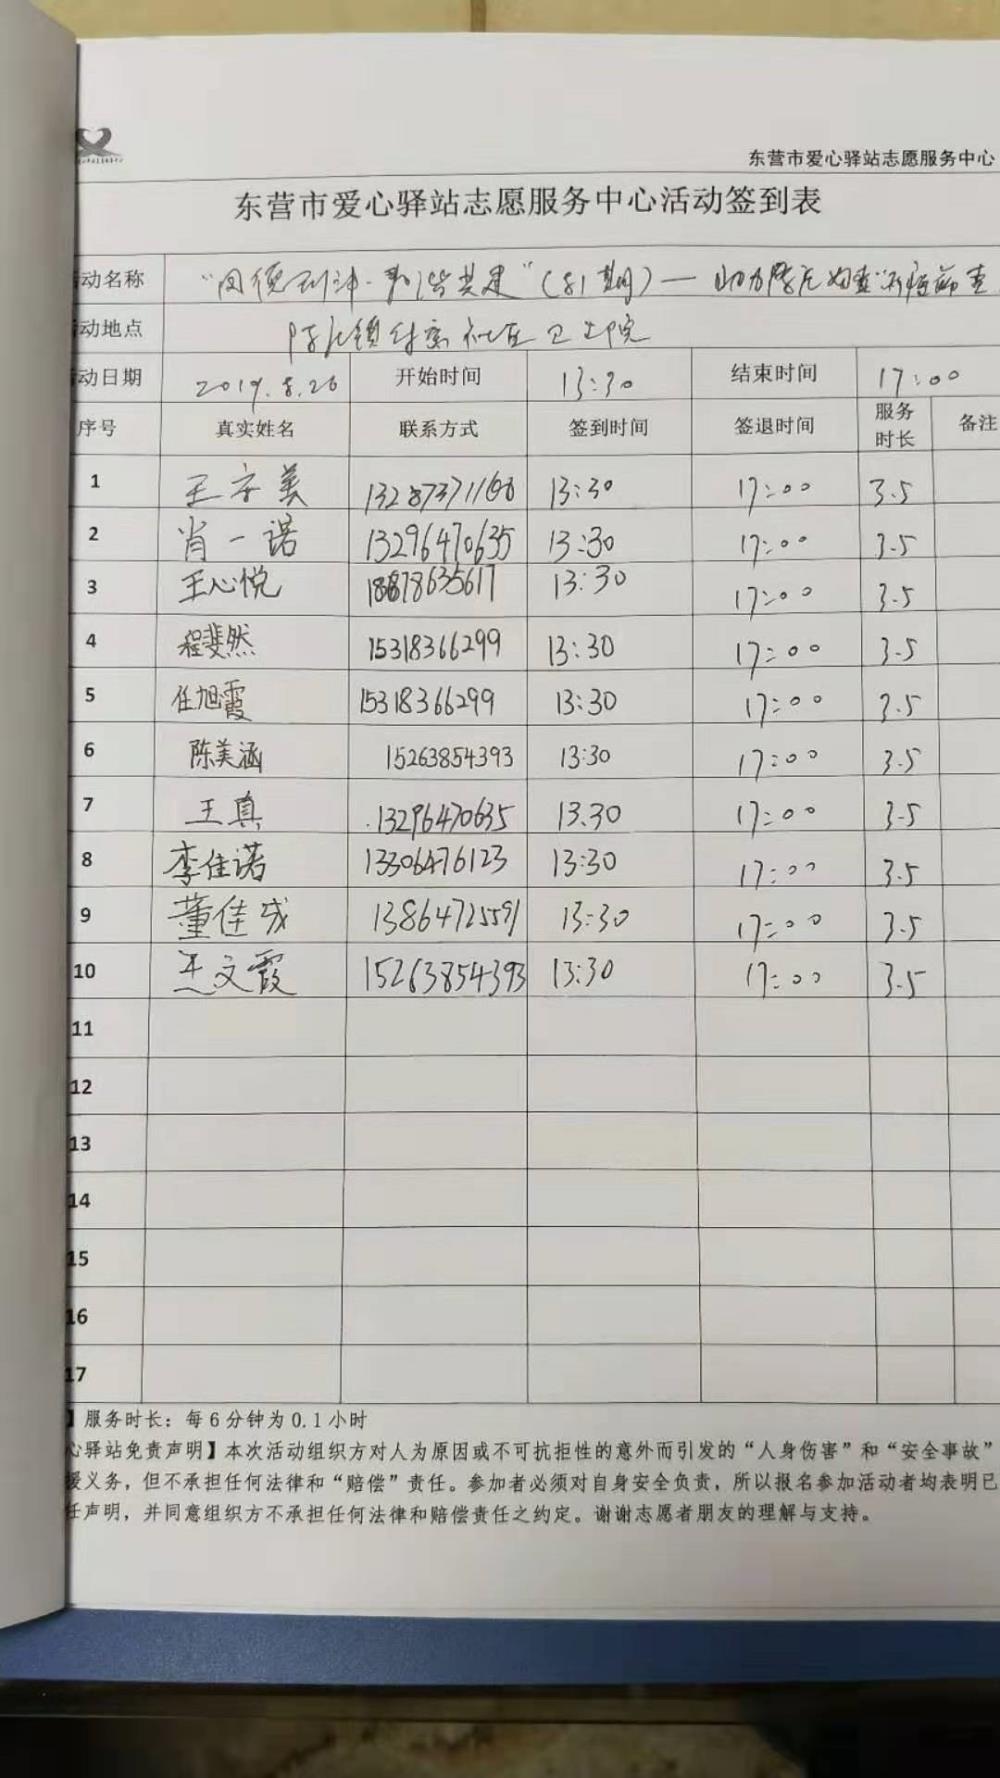 东营市爱心驿站志愿服务中心
东营市爱心驿站志愿服务中心活动签到表
动名称 （81期）— 助力
动地点 社区卫生院
动日期 2019.8.26 开始时间 13:30 结束时间 17:00
序号 真实姓名 联系方式 签到时间 签退时间 服务时长 备注
1 王守美 13:30 17:00 3.5
2 肖一诺 13296470635 13:30 17:00 3.5
3 王心悦 18878635617 13:30 17:00 3.5
4 程斐然 15318366299 13:30 17:00 3.5
5 任旭霞 15318366299 13:30 17:00 3.5
6 陈美涵 15263854393 13:30 17:00 3.5
7 王真 13296470635 13.30 17:00 3.5
8 李佳诺 13306476123 13:30 17:00 3.5
9 董佳成 13864725591 13:30 17:00 3.5
10 王文霞 15263854393 13:30 17:00 3.5
11
12
13
14
15
16
17
】服务时长：每6分钟为0.1小时
心驿站免责声明】本次活动组织方对人为原因或不可抗拒性的意外而引发的“人身伤害”和“安全事故”
援义务，但不承担任何法律和“赔偿”责任。参加者必须对自身安全负责，所以报名参加活动者均表明已
任声明，并同意组织方不承担任何法律和赔偿责任之约定。谢谢志愿者朋友的理解与支持。